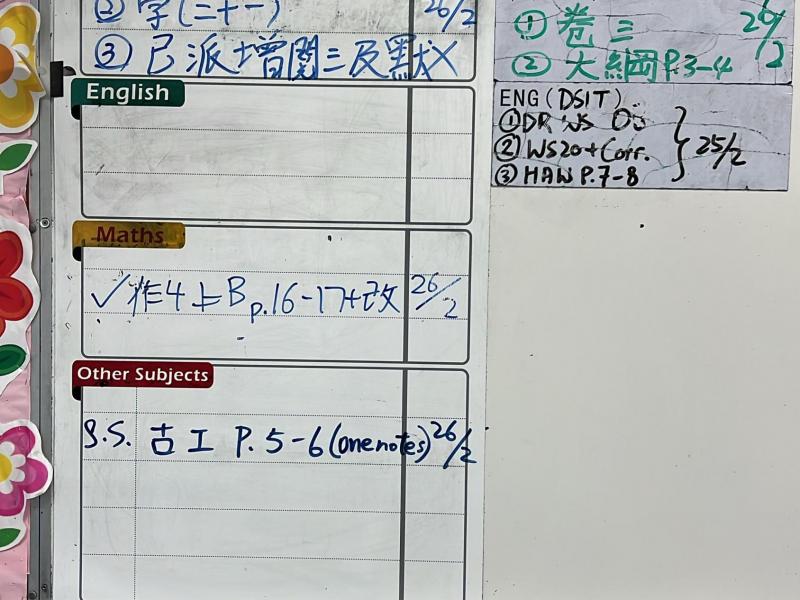 ② 字(二十一) 26/2
③ 已派增閱三及默
English
Maths
✓作4上B p.16-17+改 26/2
Other Subjects
P. 5-6 (onenotes) 26/2
① 卷三 26/2
② 大綱P.3-4
ENG (DSIT)
①DR WS
②WS20+Corr. } 25/2
③ HAW P.7-8